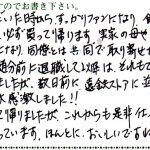 のでお書き下さい。
いた時から、すっかりファンになり、
いなず買って帰ります。実家の母や
になり、同僚とは共同で取り寄せ
処分前に退職して以来は、それも
ましたが、数日前に遠鉄ストアに並
大感激しました!!
て帰りましたが、これからも是非
ています。ほんとに、おいしいですね